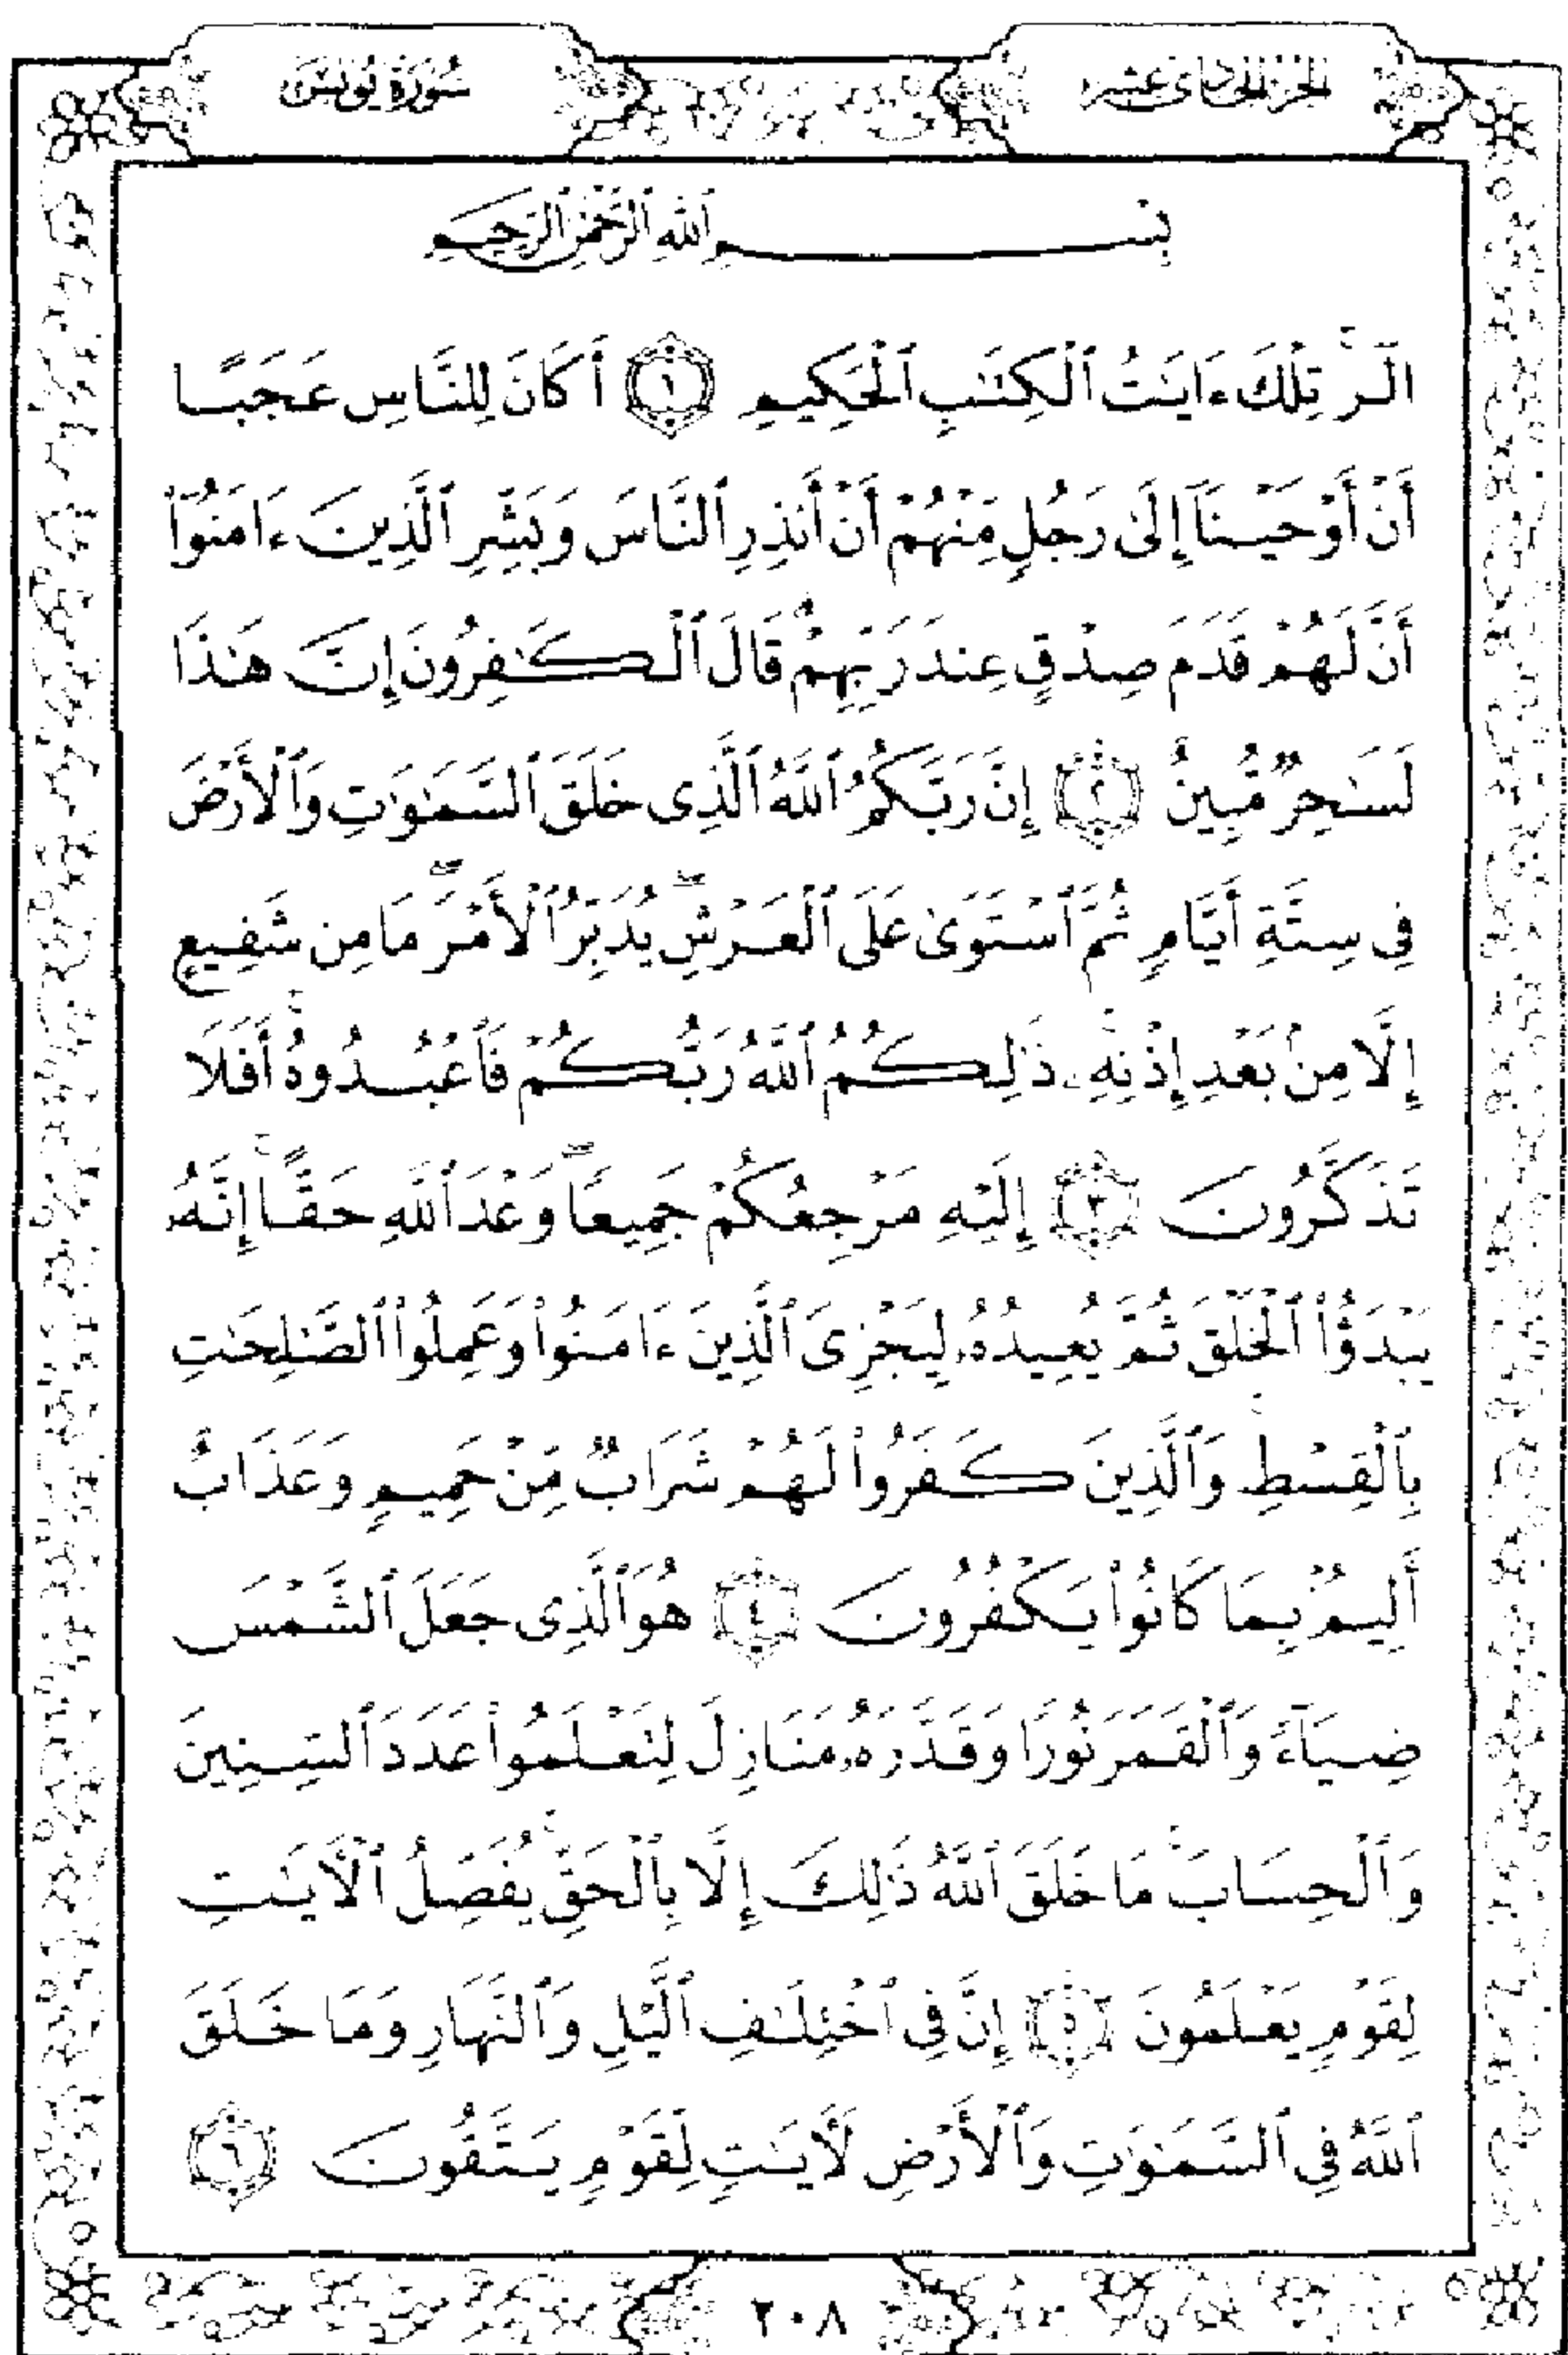 الجزء الحادى عشر
سُورَةُ يُونُسَ
بِسْمِ ٱللَّهِ ٱلرَّحْمَٰنِ ٱلرَّحِيمِ
الٓرۚ تِلْكَ ءَايَٰتُ ٱلْكِتَٰبِ ٱلْحَكِيمِ ١ أَكَانَ لِلنَّاسِ عَجَبًا
أَنْ أَوْحَيْنَآ إِلَىٰ رَجُلٍ مِّنْهُمْ أَنْ أَنذِرِ ٱلنَّاسَ وَبَشِّرِ ٱلَّذِينَ ءَامَنُوٓا۟
أَنَّ لَهُمْ قَدَمَ صِدْقٍ عِندَ رَبِّهِمْ ۗ قَالَ ٱلْكَٰفِرُونَ إِنَّ هَٰذَا
لَسَٰحِرٌ مُّبِينٌ ٢ إِنَّ رَبَّكُمُ ٱللَّهُ ٱلَّذِى خَلَقَ ٱلسَّمَٰوَٰتِ وَٱلْأَرْضَ
فِى سِتَّةِ أَيَّامٍ ثُمَّ ٱسْتَوَىٰ عَلَى ٱلْعَرْشِ ۖ يُدَبِّرُ ٱلْأَمْرَ ۖ مَا مِن شَفِيعٍ
إِلَّا مِنۢ بَعْدِ إِذْنِهِۦ ۚ ذَٰلِكُمُ ٱللَّهُ رَبُّكُمْ فَٱعْبُدُوهُ ۚ أَفَلَا
تَذَكَّرُونَ ٣ إِلَيْهِ مَرْجِعُكُمْ جَمِيعًا ۖ وَعْدَ ٱللَّهِ حَقًّا ۚ إِنَّهُۥ
يَبْدَؤُا۟ ٱلْخَلْقَ ثُمَّ يُعِيدُهُۥ لِيَجْزِىَ ٱلَّذِينَ ءَامَنُوا۟ وَعَمِلُوا۟ ٱلصَّٰلِحَٰتِ
بِٱلْقِسْطِ ۚ وَٱلَّذِينَ كَفَرُوا۟ لَهُمْ شَرَابٌ مِّنْ حَمِيمٍ وَعَذَابٌ
أَلِيمٌۢ بِمَا كَانُوا۟ يَكْفُرُونَ ٤ هُوَ ٱلَّذِى جَعَلَ ٱلشَّمْسَ
ضِيَآءً وَٱلْقَمَرَ نُورًا وَقَدَّرَهُۥ مَنَازِلَ لِتَعْلَمُوا۟ عَدَدَ ٱلسِّنِينَ
وَٱلْحِسَابَ ۚ مَا خَلَقَ ٱللَّهُ ذَٰلِكَ إِلَّا بِٱلْحَقِّ ۚ يُفَصِّلُ ٱلْءَايَٰتِ
لِقَوْمٍ يَعْلَمُونَ ٥ إِنَّ فِى ٱخْتِلَٰفِ ٱلَّيْلِ وَٱلنَّهَارِ وَمَا خَلَقَ
ٱللَّهُ فِى ٱلسَّمَٰوَٰتِ وَٱلْأَرْضِ لَءَايَٰتٍ لِّقَوْمٍ يَتَّقُونَ ٦
٢٠٨